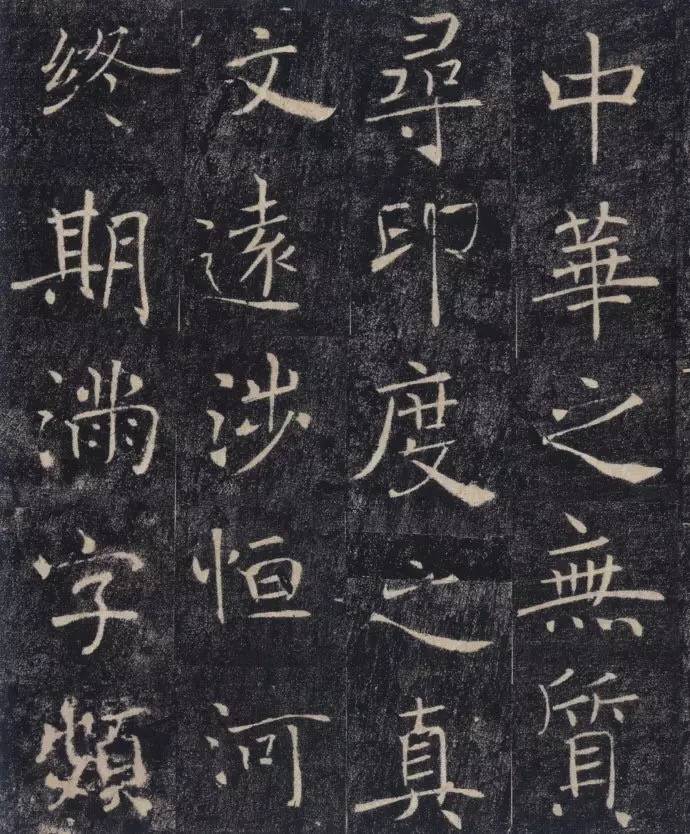 中華之無質
尋印度之真
文遠涉恒河
終期滿字頻